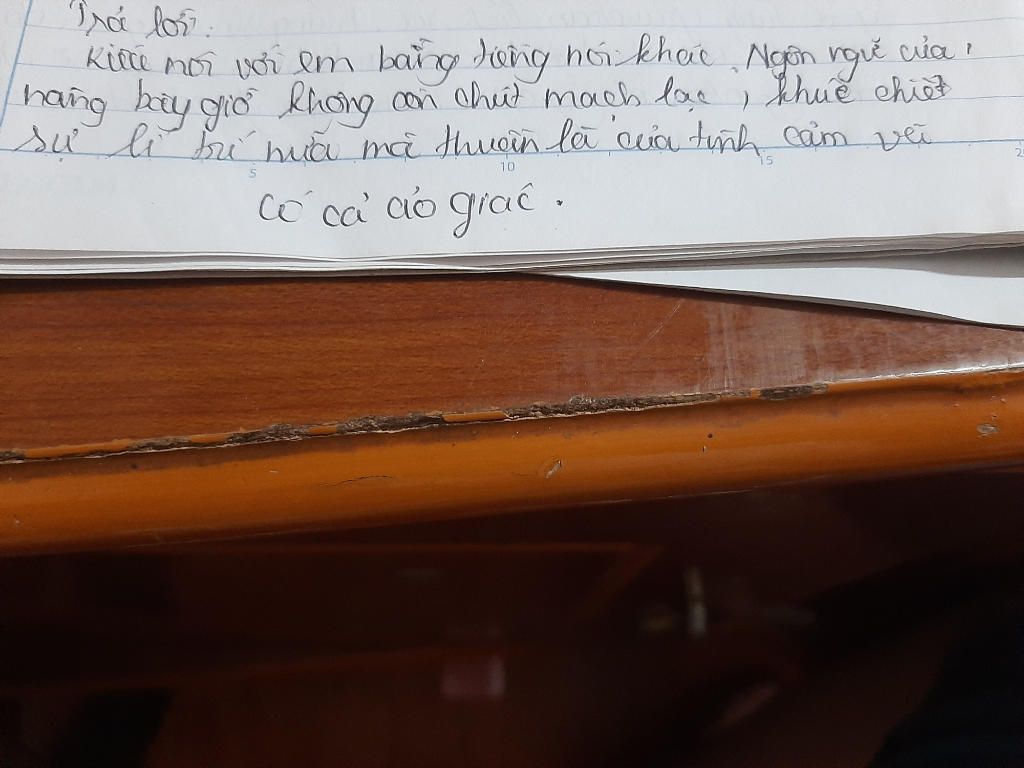 Trả lời:
Kiều nói với em bằng tiếng nói khác. Ngôn ngữ của
nàng bây giờ không còn chút mạch lạc, khuê chiết
sự lí trí nữa mà thuần là của tình cảm và
5 10 15 20
có cả ảo giác.